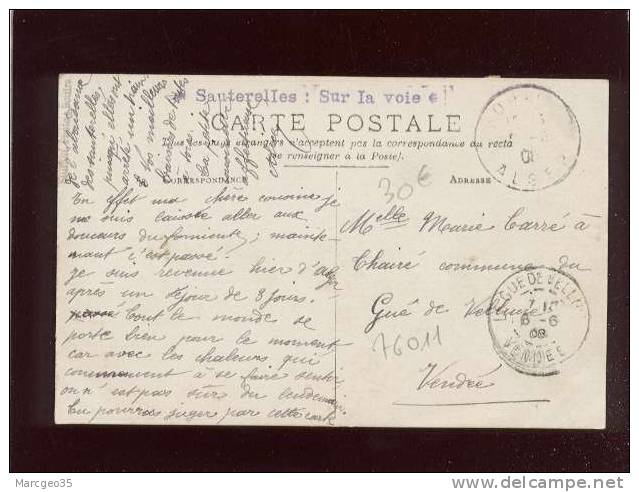 Sauterelles : Sur la voie
CARTE POSTALE
Tous les pays étrangers n'acceptent pas la correspondance au recto
(Se renseigner à la Poste).
CORRESPONDANCE
ADRESSE
En effet ma chère cousine je
me suis laissée aller aux
douceurs du farniente; mainte-
nant c'est passé.
Je suis revenue hier d'Alger
après un séjour de 8 jours.
tout le monde se
porte bien pour le moment
car avec les chaleurs qui
commencent à se faire sentir
on n'est pas sûr du lendemain
Tu pourras juger par cette carte
de l'abondance
des sauterelles,
puisqu'elles ont
arrêté un train
30€
Melle Marie Carré à
Chairé commune du
Gué de Velluire
Vendée
76011
ALGER
LE GUE DE VELLUIRE
6-6
08
VENDEE
Marcgeo35
www.delcampe.net